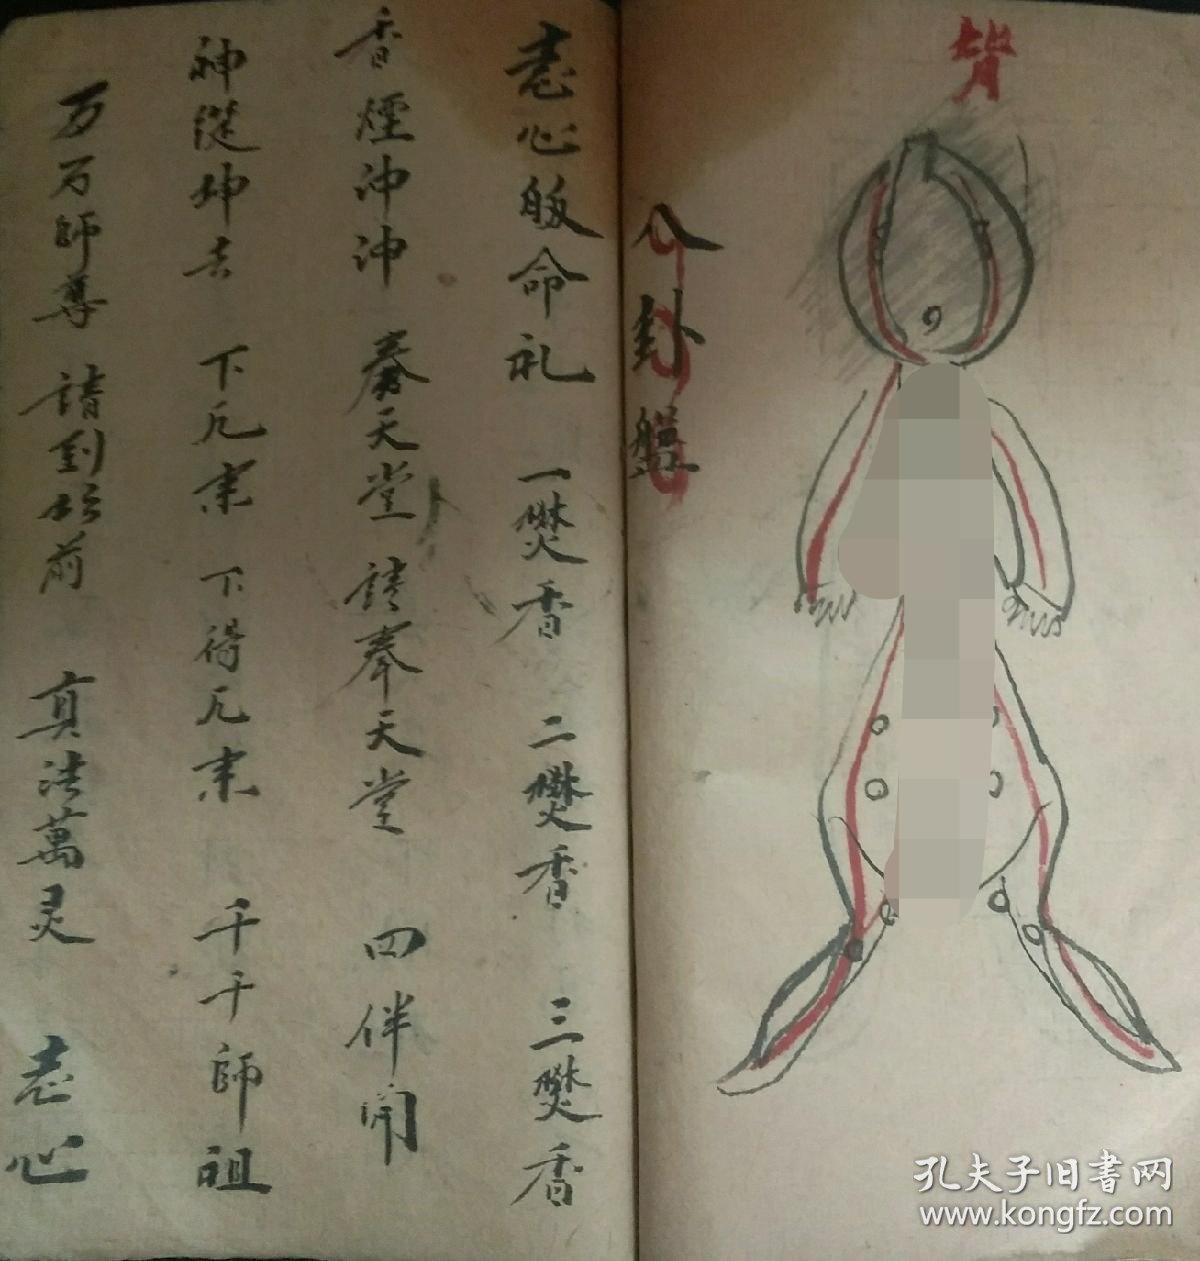 背
八卦盤
志心皈命礼 一焚香 二焚香 三焚香
香煙沖沖 奏天堂 請奉天堂 四伴開
神從坤去 下 下得 千千師祖
万万師尊 請到坛前 真法萬灵 志心
孔夫子旧書网
www.kongfz.com